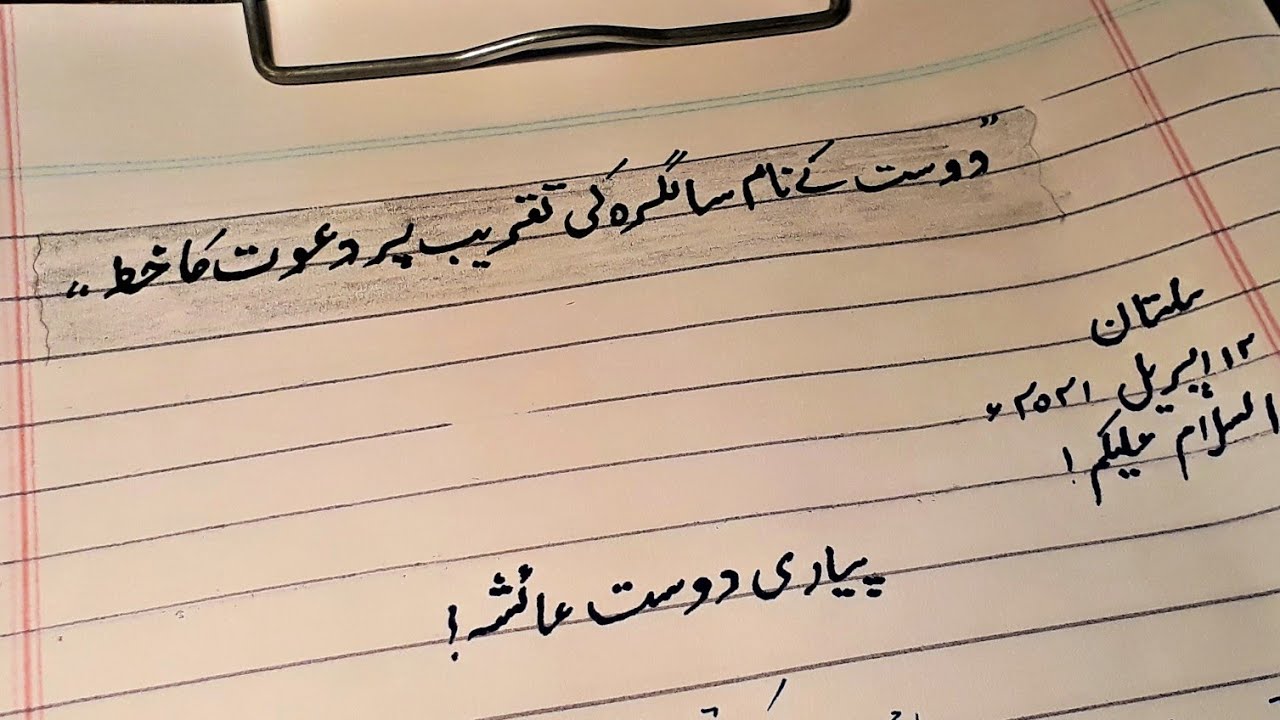 "دوست کے نام سالگرہ کی تقریب پر دعوت کا خط"
ملتان
۱۲ اپریل ۲۰۲۱ء
السلام علیکم!
پیاری دوست عائشہ!